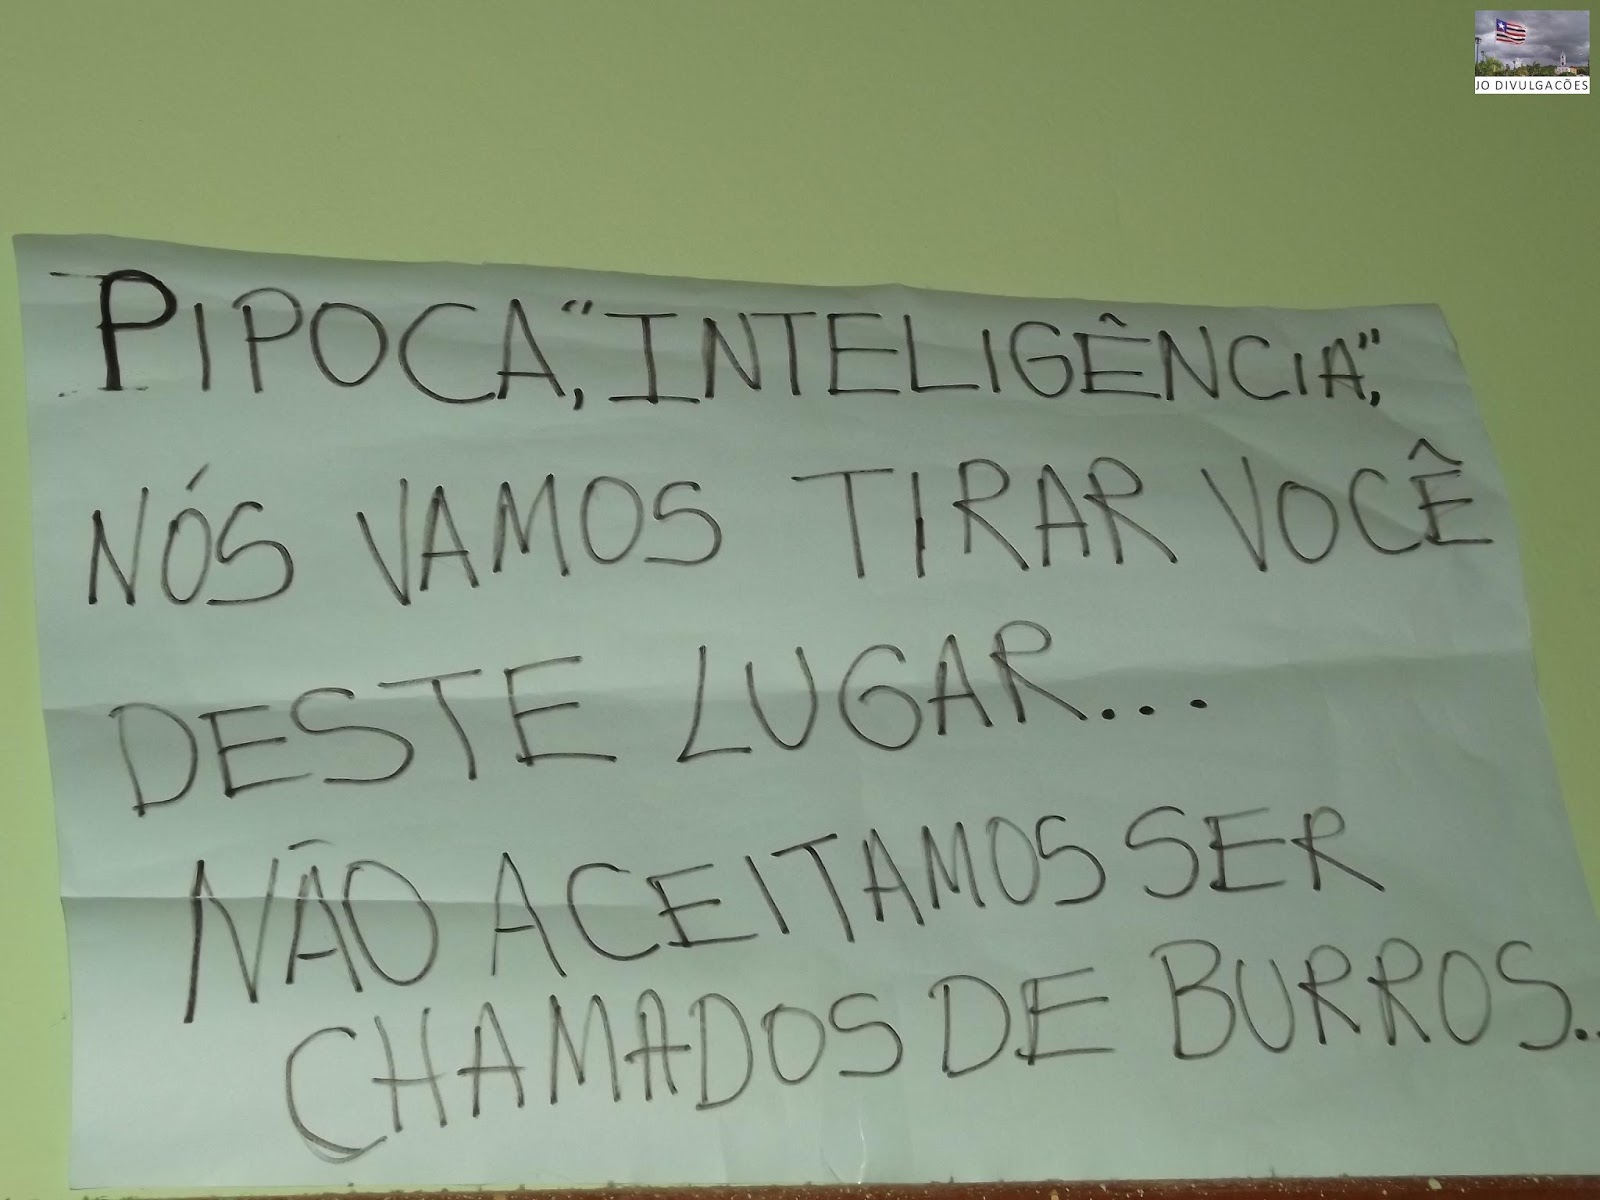 JO DIVULGACÕES
PIPOCA, "INTELIGÊNCIA",
NÓS VAMOS TIRAR VOCÊ
DESTE LUGAR...
NÃO ACEITAMOS SER
CHAMADOS DE BURROS..